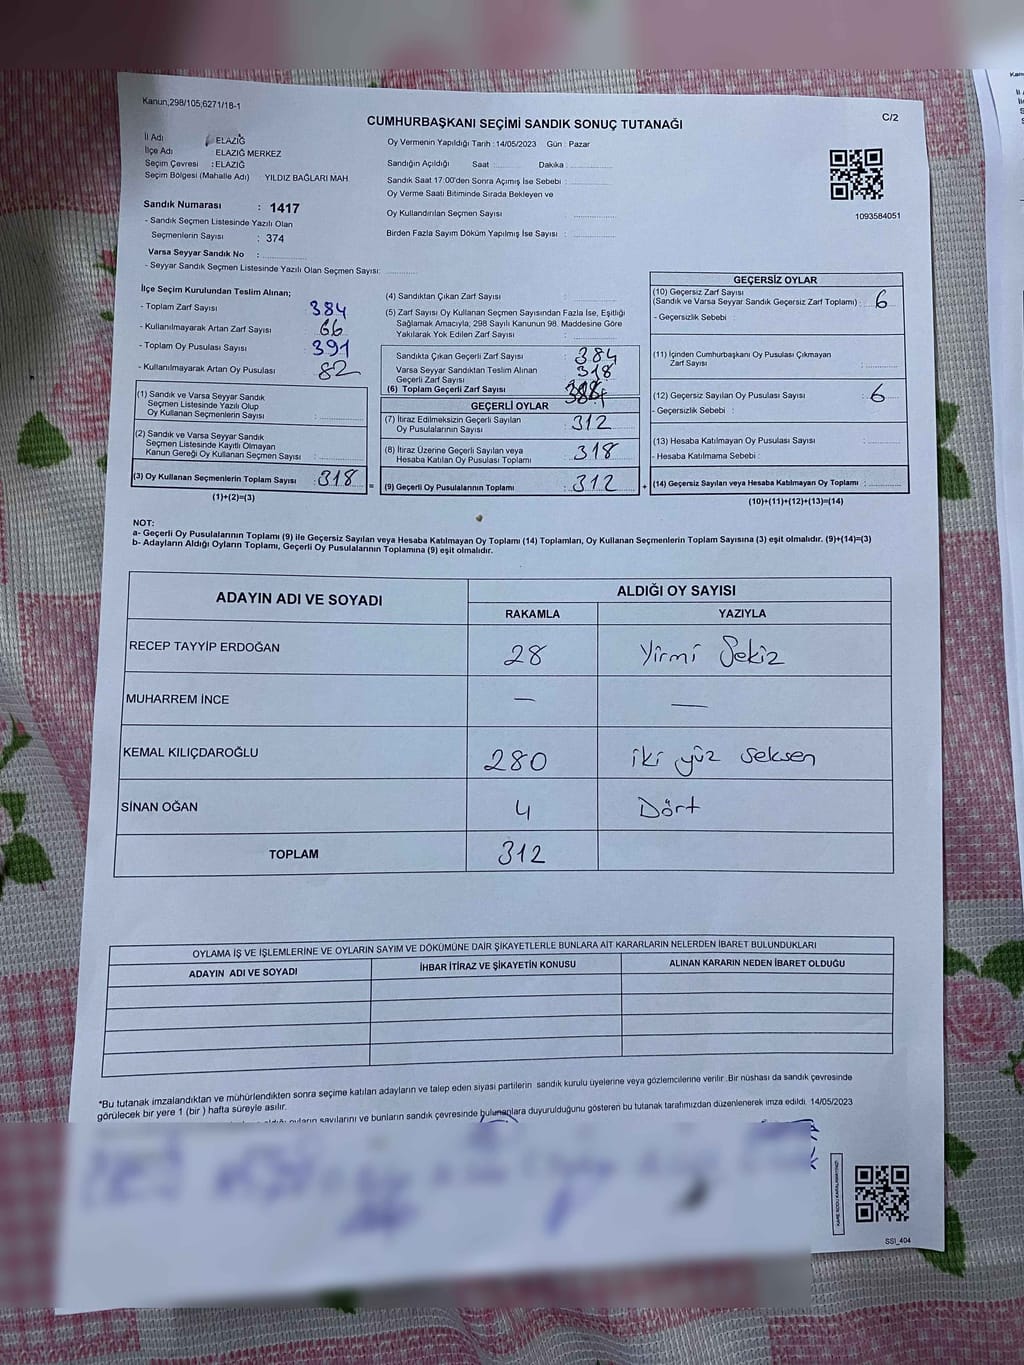 Kanun;298/105,6271/18-1
C/2
CUMHURBAŞKANI SEÇİMİ SANDIK SONUÇ TUTANAĞI
İl Adı ELAZIĞ
İlçe Adı ELAZIĞ MERKEZ
Seçim Çevresi : ELAZIĞ
Seçim Bölgesi (Mahalle Adı) YILDIZ BAĞLARI MAH.
Sandık Numarası : 1417
- Sandık Seçmen Listesinde Yazılı Olan
Seçmenlerin Sayısı : 374
Varsa Seyyar Sandık No :
- Seyyar Sandık Seçmen Listesinde Yazılı Olan Seçmen Sayısı:
Oy Vermenin Yapıldığı Tarih : 14/05/2023 Gün : Pazar
Sandığın Açıldığı Saat : Dakika :
Sandık Saat 17:00'den Sonra Açımış İse Sebebi :
Oy Verme Saati Bitiminde Sırada Bekleyen ve
Oy Kullandırılan Seçmen Sayısı :
Birden Fazla Sayım Döküm Yapılmış İse Sayısı :
1093584051
İlçe Seçim Kurulundan Teslim Alınan;
- Toplam Zarf Sayısı : 384
- Kullanılmayarak Artan Zarf Sayısı : 66
- Toplam Oy Pusulası Sayısı : 391
- Kullanılmayarak Artan Oy Pusulası : 82
(1) Sandık ve Varsa Seyyar Sandık
Seçmen Listesinde Yazılı Olup
Oy Kullanan Seçmenlerin Sayısı :
(2) Sandık ve Varsa Seyyar Sandık
Seçmen Listesinde Kayıtlı Olmayan
Kanun Gereği Oy Kullanan Seçmen Sayısı :
(3) Oy Kullanan Seçmenlerin Toplam Sayısı : 318
(1)+(2)=(3)
(4) Sandıktan Çıkan Zarf Sayısı :
(5) Zarf Sayısı Oy Kullanan Seçmen Sayısından Fazla İse, Eşitliği
Sağlamak Amacıyla, 298 Sayılı Kanunun 98. Maddesine Göre
Yakılarak Yok Edilen Zarf Sayısı :
Sandıkta Çıkan Geçerli Zarf Sayısı : 384
Varsa Seyyar Sandıktan Teslim Alınan
Geçerli Zarf Sayısı : 318
(6) Toplam Geçerli Zarf Sayısı :
GEÇERLİ OYLAR
(7) İtiraz Edilmeksizin Geçerli Sayılan
Oy Pusulalarının Sayısı : 312
(8) İtiraz Üzerine Geçerli Sayılan veya
Hesaba Katılan Oy Pusulası Toplamı : 318
= (9) Geçerli Oy Pusulalarının Toplamı : 312
GEÇERSİZ OYLAR
(10) Geçersiz Zarf Sayısı
(Sandık ve Varsa Seyyar Sandık Geçersiz Zarf Toplamı) : 6
- Geçersizlik Sebebi :
(11) İçinden Cumhurbaşkanı Oy Pusulası Çıkmayan
Zarf Sayısı :
(12) Geçersiz Sayılan Oy Pusulası Sayısı : 6
- Geçersizlik Sebebi :
(13) Hesaba Katılmayan Oy Pusulası Sayısı :
- Hesaba Katılmama Sebebi :
+ (14) Geçersiz Sayılan veya Hesaba Katılmayan Oy Toplamı :
(10)+(11)+(12)+(13)=(14)
NOT:
a- Geçerli Oy Pusulalarının Toplamı (9) ile Geçersiz Sayılan veya Hesaba Katılmayan Oy Toplamı (14) Toplamları, Oy Kullanan Seçmenlerin Toplam Sayısına (3) eşit olmalıdır. (9)+(14)=(3)
b- Adayların Aldığı Oyların Toplamı, Geçerli Oy Pusulalarının Toplamına (9) eşit olmalıdır.
ADAYIN ADI VE SOYADI
ALDIĞI OY SAYISI
RAKAMLA YAZIYLA
RECEP TAYYİP ERDOĞAN 28 Yirmi Sekiz
MUHARREM İNCE — —
KEMAL KILIÇDAROĞLU 280 iki yüz seksen
SİNAN OĞAN 4 Dört
TOPLAM 312
OYLAMA İŞ VE İŞLEMLERİNE VE OYLARIN SAYIM VE DÖKÜMÜNE DAİR ŞİKAYETLERLE BUNLARA AİT KARARLARIN NELERDEN İBARET BULUNDUKLARI
ADAYIN ADI VE SOYADI İHBAR İTİRAZ VE ŞİKAYETİN KONUSU ALINAN KARARIN NEDEN İBARET OLDUĞU
*Bu tutanak imzalandıktan ve mühürlendikten sonra seçime katılan adayların ve talep eden siyasi partilerin sandık kurulu üyelerine veya gözlemcilerine verilir. Bir nüshası da sandık çevresinde
görülecek bir yere 1 (bir ) hafta süreyle asılır.
sayılarını ve bunların sandık çevresinde bulunanlara duyurulduğunu gösteren bu tutanak tarafımızdan düzenlenerek imza edildi. 14/05/2023
SSI_404